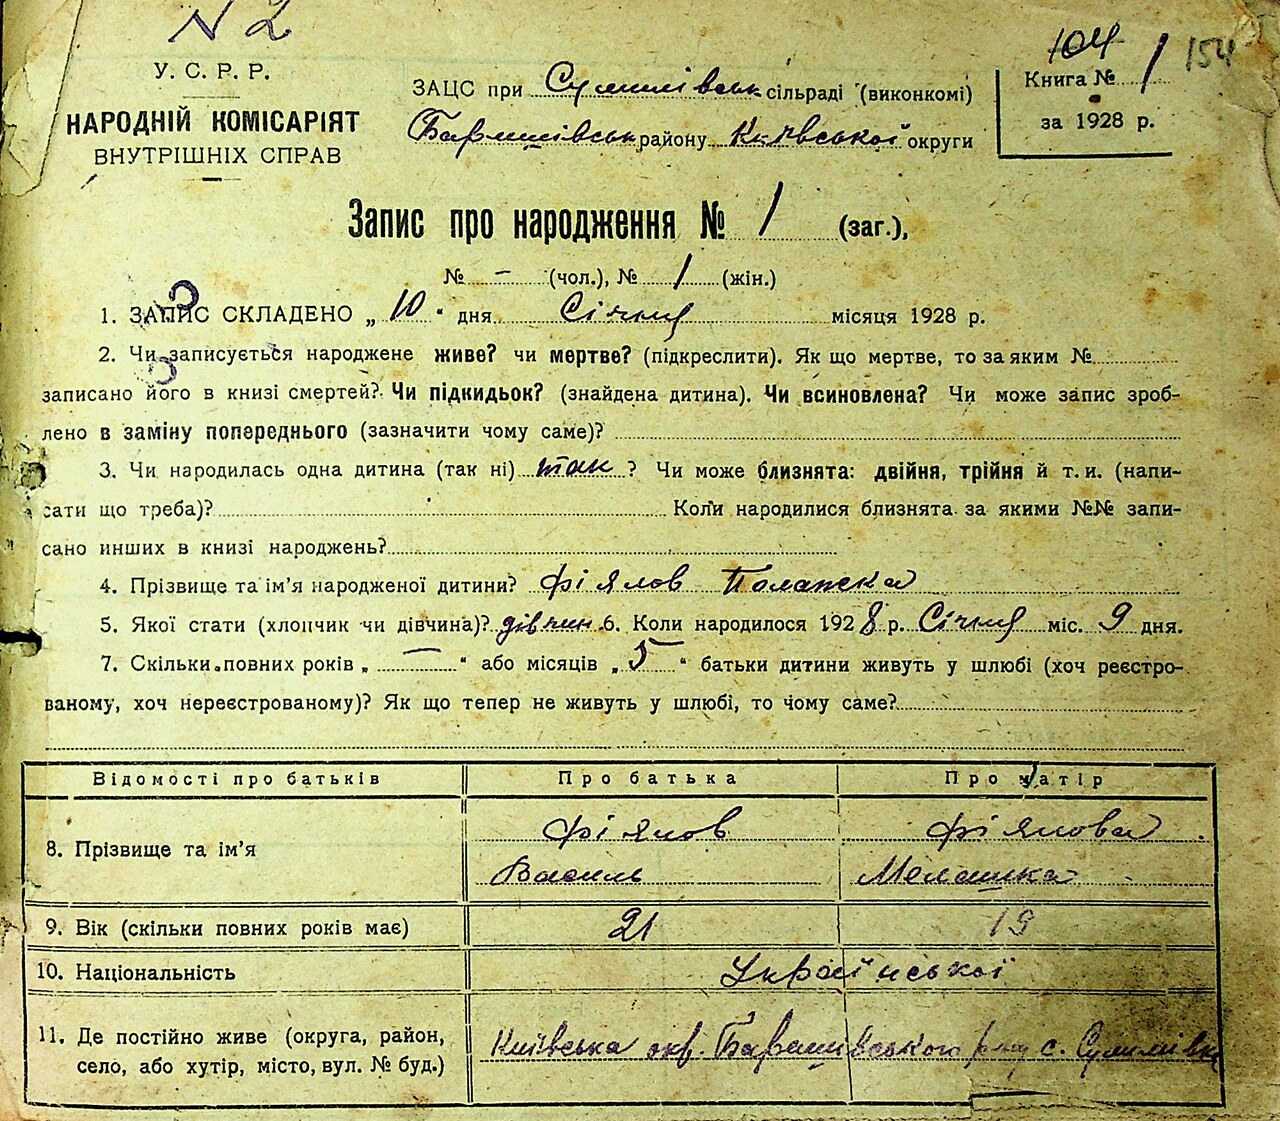 N 2
104
154
У. С. Р. Р.
НАРОДНІЙ КОМІСАРІЯТ
ВНУТРІШНІХ СПРАВ
ЗАЦС при Сулимівськ сільраді (виконкомі)
Баришівськ району Київської округи
Книга № 1
за 1928 р.
Запис про народження № 1 (заг.),
№ - (чол.), № 1 (жін.)
1. ЗАПИС СКЛАДЕНО „ 10 " дня Січня місяця 1928 р.
2. Чи записується народжене живе? чи мертве? (підкреслити). Як що мертве, то за яким №
записано його в книзі смертей? Чи підкидьок? (знайдена дитина). Чи всиновлена? Чи може запис зроб-
лено в заміну попереднього (зазначити чому саме)?
3. Чи народилась одна дитина (так ні) так ? Чи може близнята: двійня, трійня й т. и. (напи-
сати що треба)? Коли народилися близнята за якими №№ запи-
сано инших в книзі народжень?
4. Прізвище та ім'я народженої дитини? Фіялов
5. Якої стати (хлопчик чи дівчина)? дівчин 6. Коли народилося 1928 р. Січня міс. 9 дня.
7. Скільки повних років „ — " або місяців „ 5 " батьки дитини живуть у шлюбі (хоч реєстро-
ваному, хоч нереєстрованому)? Як що тепер не живуть у шлюбі, то чому саме?
Відомості про батьків Про батька Про матір
8. Прізвище та ім'я
Фіялов Фіялова
Василь Мелашка
9. Вік (скільки повних років має) 21 19
10. Національність Української
11. Де постійно живе (округа, район,
село, або хутір, місто, вул. № буд.)
Київська окр. Баришівського р-ну с. Сулимівка